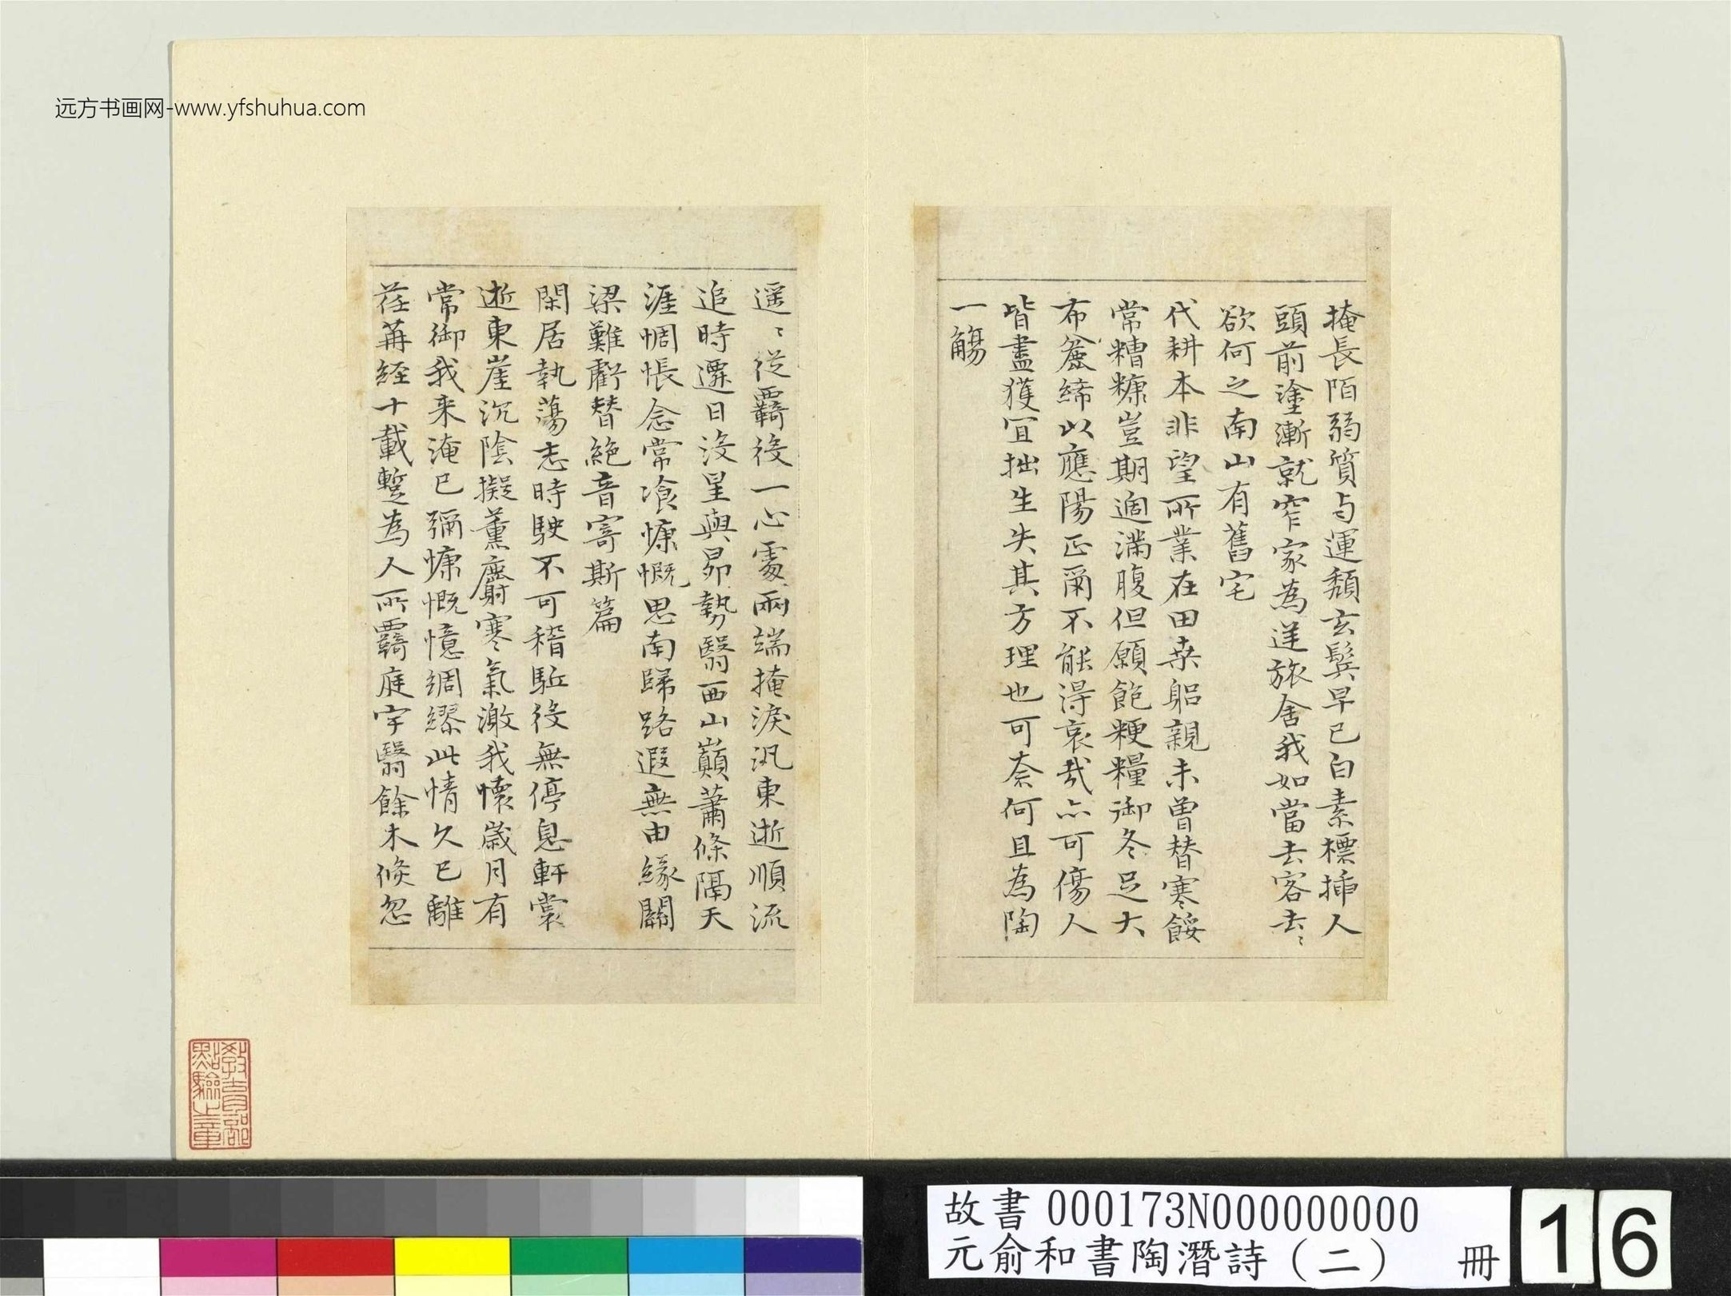 远方书画网-www.yfshuhua.com
掩長陌弱質与運頹玄鬢早已白素標揷人
頭前塗漸就窄家為逆旅舍我如當去客去〻
欲何之南山有舊宅
代耕本非望所業在田桒躬親未曽替寒餒
常糟糠豈期過滿腹但願飽粳糧御冬足大
布麄絺以應陽正爾不能得哀哉亦可傷人
皆盡獲宜拙生失其方理也可柰何且為陶
一觴
遥〻從羇役一心處兩端掩淚汎東逝順流
追時遷日没星與昴勢翳西山巔蕭條隔天
涯惆悵念常飡慷慨思南歸路遐無由緣關
梁難虧替絶音寄斯篇
閑居執蕩志時駛不可稽駈役無停息軒裳
逝東崖沉陰擬薫麝寒氣激我懷歲月有
常御我来淹已彌慷慨憶綢繆此情久已離
荏苒経十載蹔為人所羇庭宇翳餘木倐忽
教育部點驗之章
故書 000173N000000000
元俞和書陶潛詩（二） 冊
16